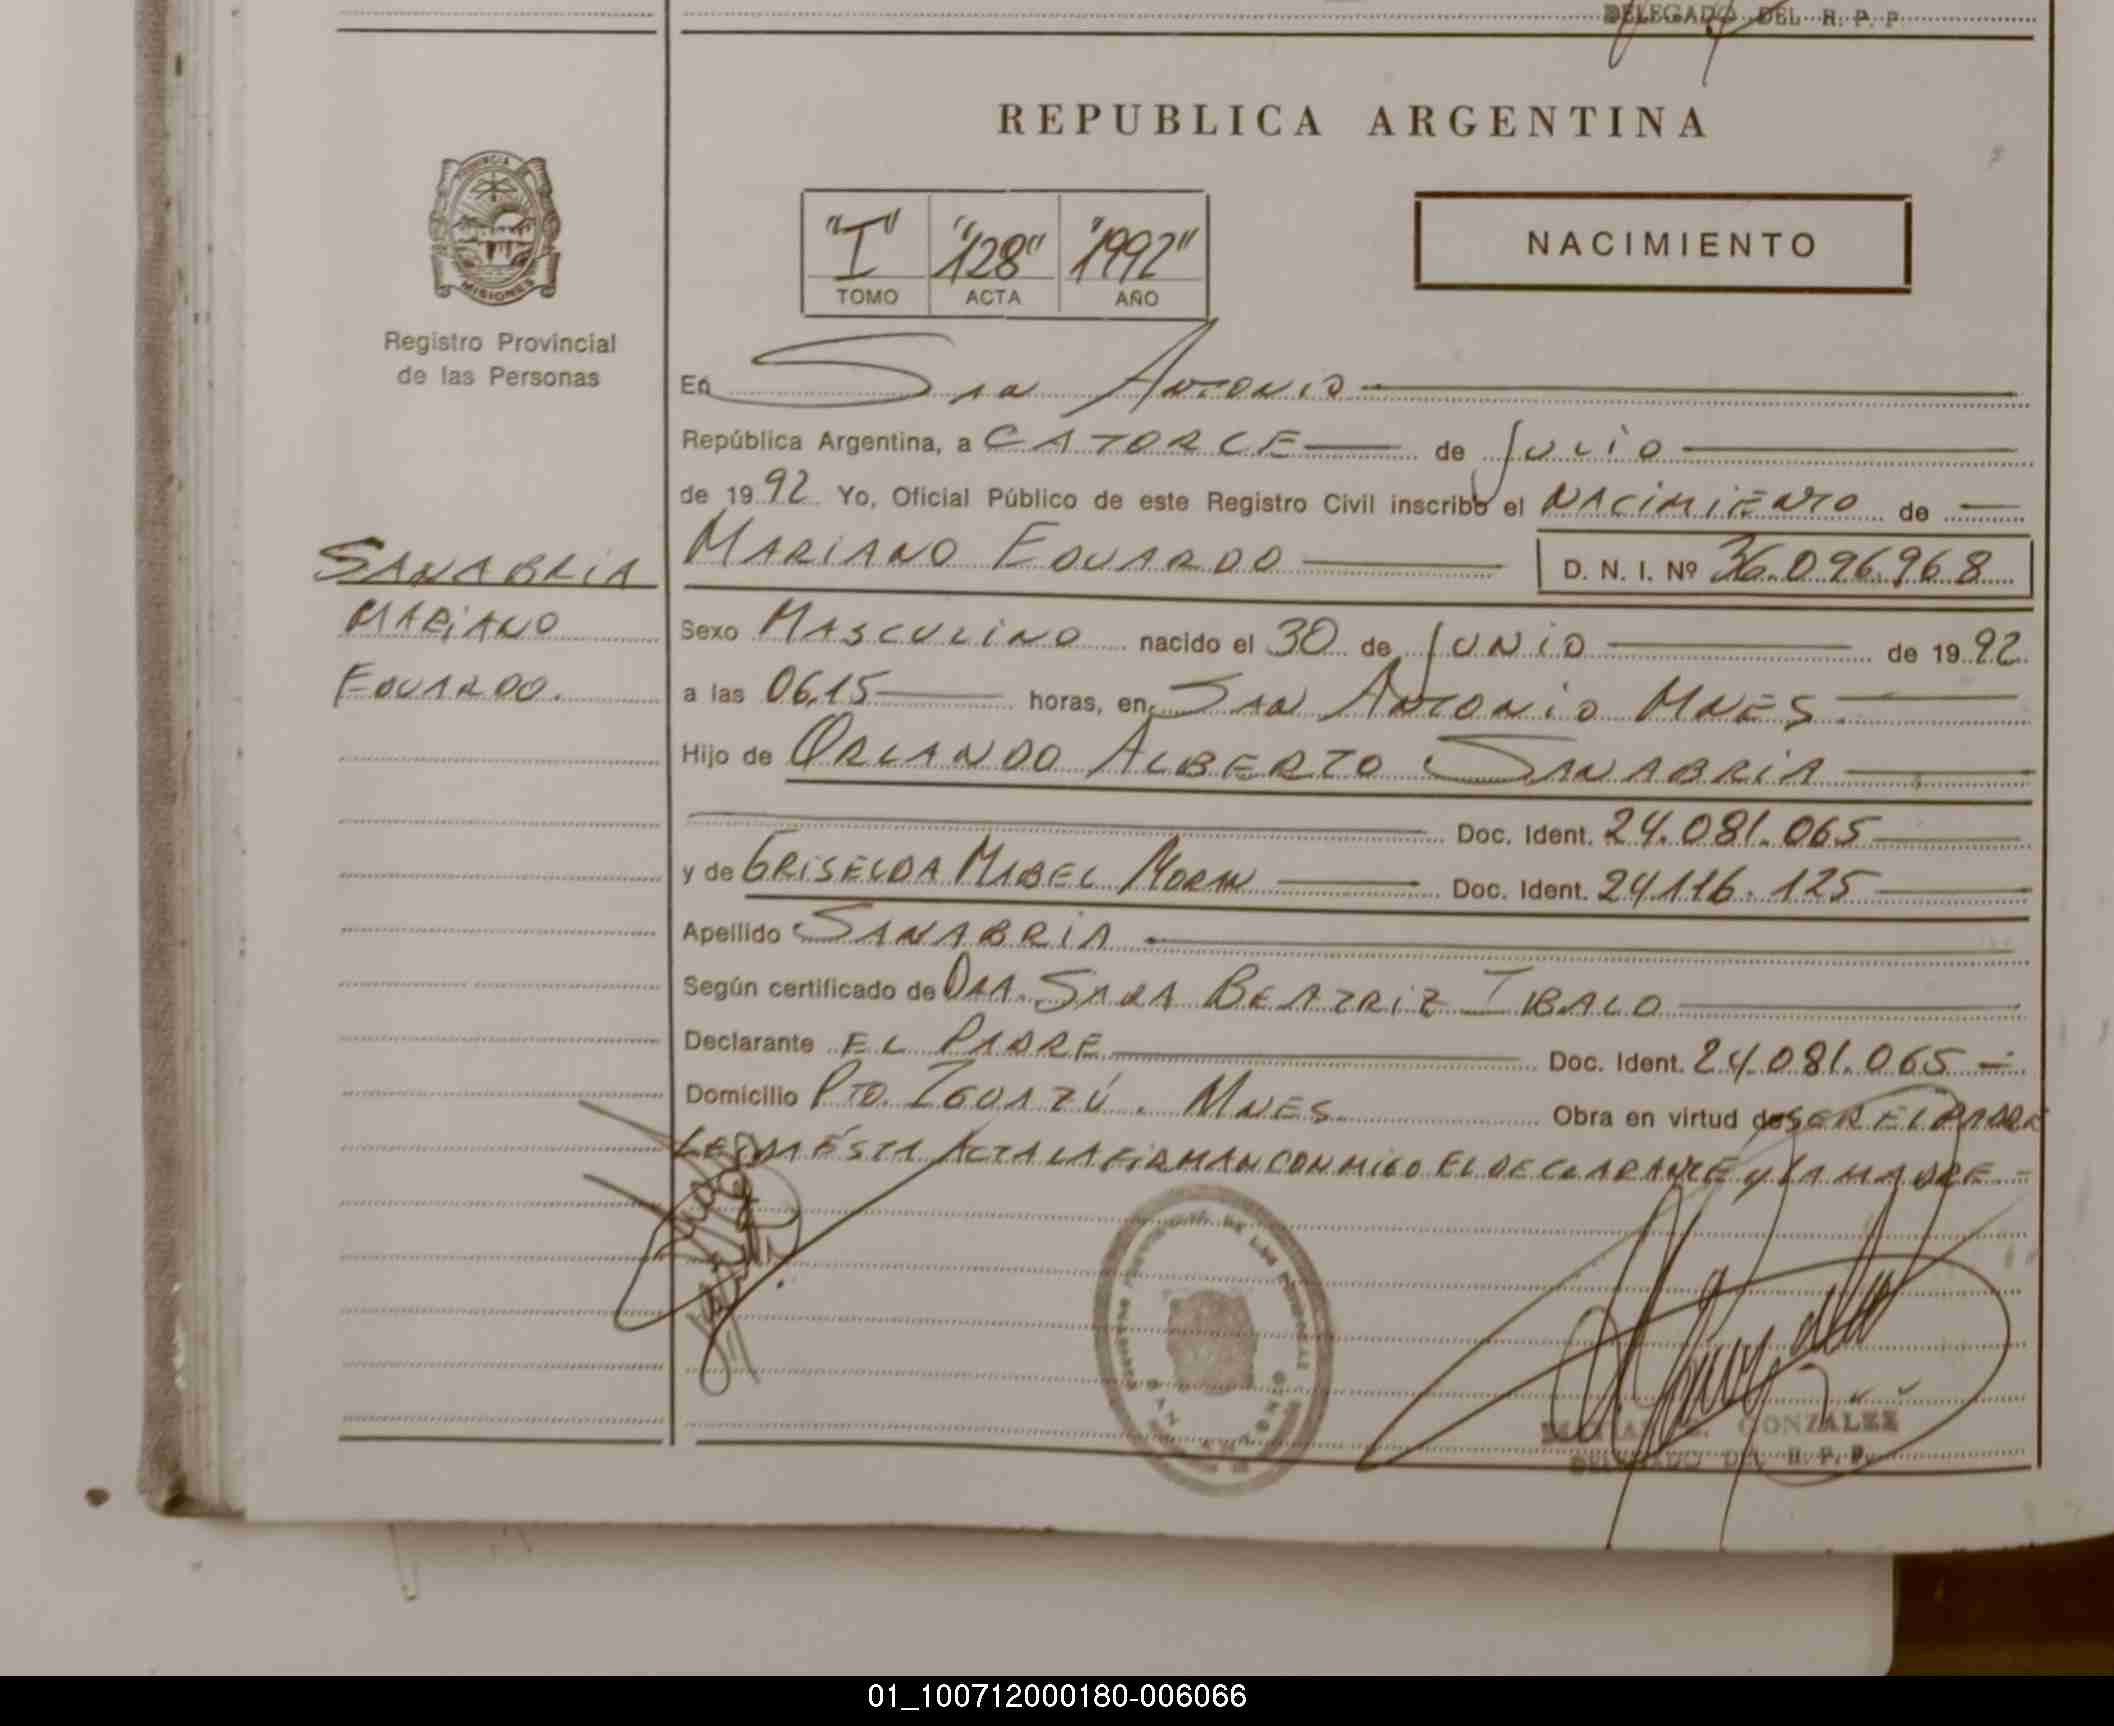 DELEGADO DEL R. P. P
REPUBLICA ARGENTINA
PROVINCIA
MISIONES
Registro Provincial
de las Personas
"I" "128" "1992"
TOMO ACTA AÑO
NACIMIENTO
En San Antonio
República Argentina, a CATORCE de Julio
de 1992 Yo, Oficial Público de este Registro Civil inscribo el NACIMIENTO de
SANABRIA
MARIANO
EDUARDO.
MARIANO EDUARDO D. N. I. Nº 36.096.968
Sexo MASCULINO nacido el 30 de JUNIO de 1992
a las 06,15 horas, en SAN ANTONIO MNES.
Hijo de ORLANDO ALBERTO SANABRIA
Doc. Ident. 24.081.065
y de GRISELDA MABEL MORAN Doc. Ident. 24.116.125
Apellido SANABRIA
Según certificado de DRA. SARA BEATRIZ IBALO
Declarante EL PADRE Doc. Ident. 24.081.065
Domicilio PTO. IGUAZÚ. MNES. Obra en virtud de SER EL PADRE
LEIDA ÉSTA ACTA LA FIRMAN CONMIGO EL DECLARANTE Y LA MADRE.
GONZALEZ
DELEGADO DEL R. P. P.
01_100712000180-006066